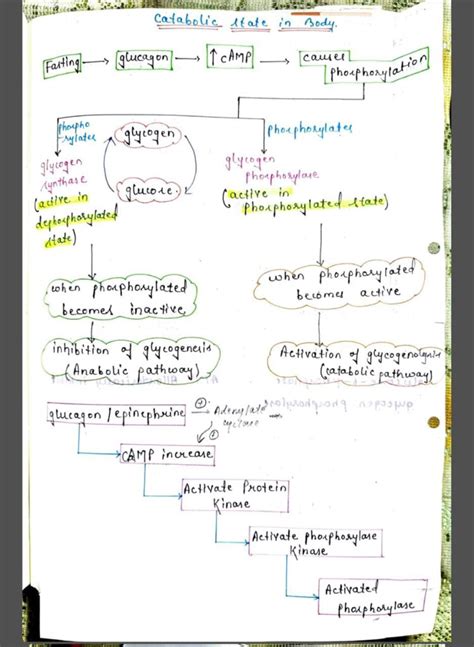 Catabolic state in Body.
Fasting → glucagon → ↑ cAMP → causes phosphorylation
phospho
rylates
glycogen
synthase
(active in
dephosphorylated
state)
glycogen
glucose
Phosphorylates
glycogen
phosphorylase
(active in
phosphorylated state)
when phosphorylated
becomes inactive
when phosphorylated
becomes active
inhibition of glycogenesis
(Anabolic pathway)
Activation of glycogenolysis
(catabolic pathway)
glucagon / epinephrine
+
Adenylate
cyclase
+
cAMP increase
Activate Protein
Kinase
Activate phosphorylase
Kinase
Activated
phosphorylase